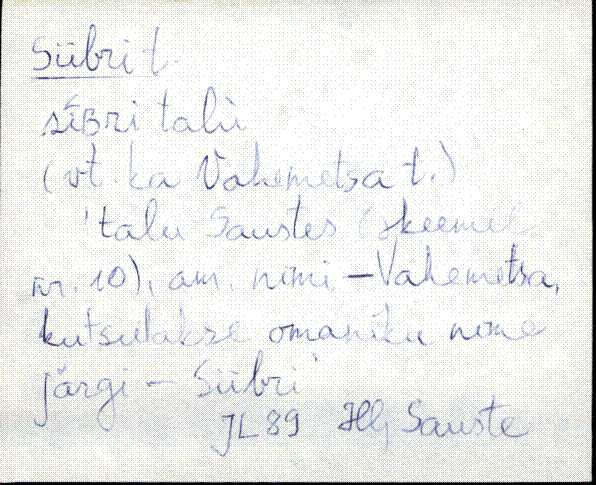 Siibri t.
sīʙri talu
(vt. ka Vahemetsa t.)
'talu Saustes (skeemil
nr. 10), am. nimi – Vahemetsa,
kutsutakse omaniku nime
järgi – Siibri'
JL 89 Hlj Sauste